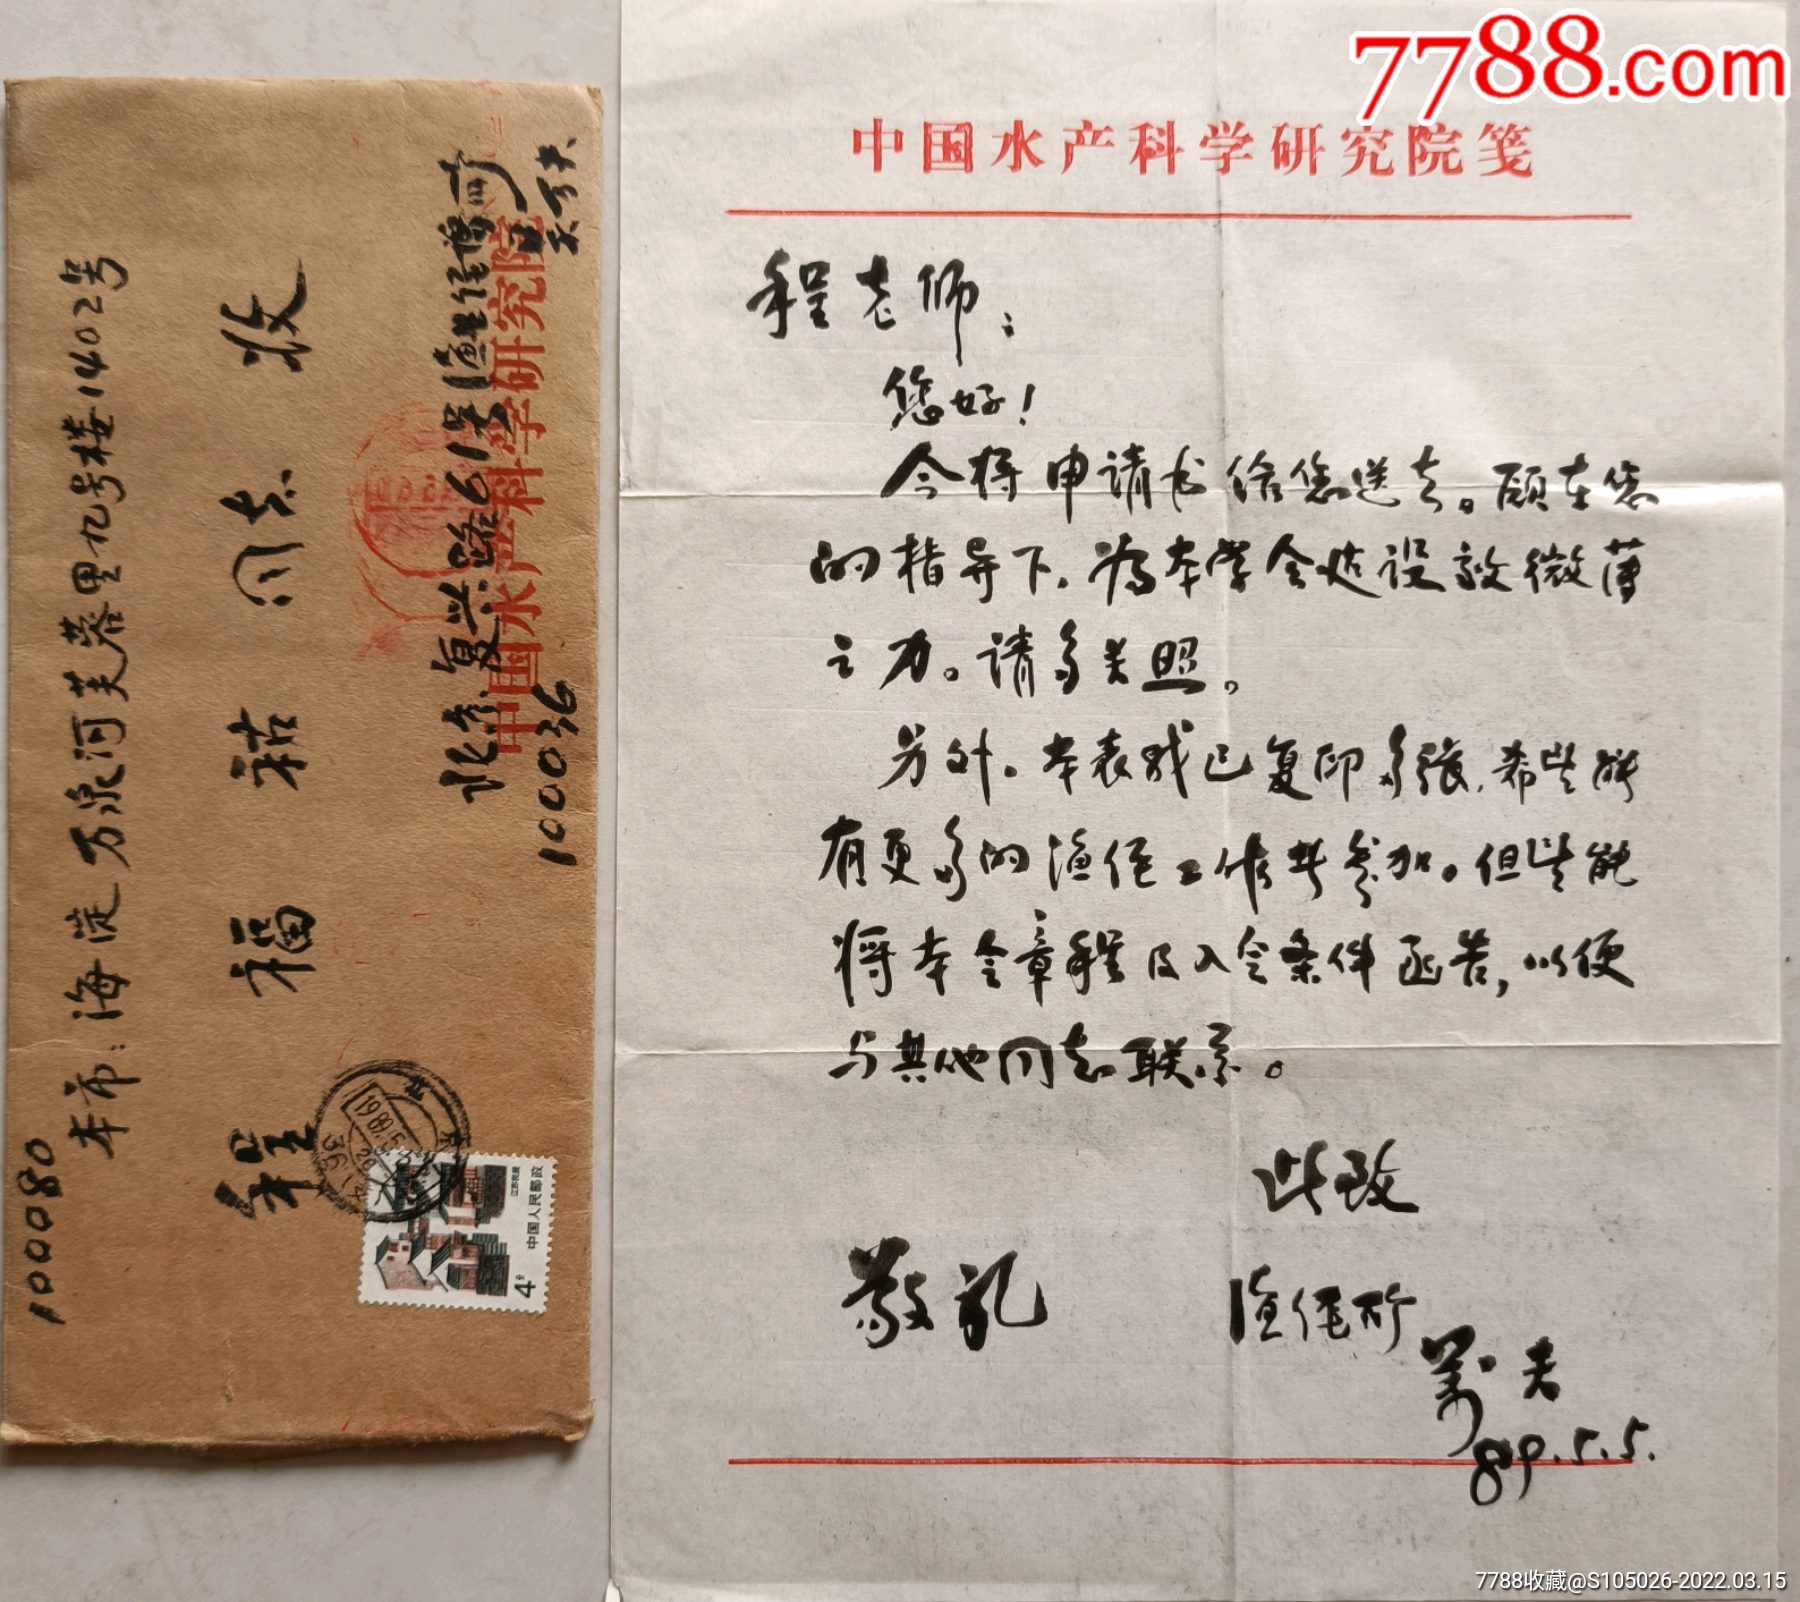 7788.com
中国水产科学研究院笺
程老师:
您好!
今将申请书给您送去。愿在您
的指导下,为本学会建设效微薄
之力。请多关照。
另外,本表我已复印多张,希望能
有更多的渔经工作者参加。但望能
将本会章程及入会条件函告,以便
与其他同志联系。
此致
敬礼
渔经所
万夫
89.5.5.
100080
本市:海淀万泉河芙蓉里九号楼1402号
程福祜同志 收
北京复兴路61号渔业经济所
中国水产科学研究院
100036
1989.5
北京
36
中国人民邮政
江苏民居
4分
7788收藏@S105026-2022.03.15